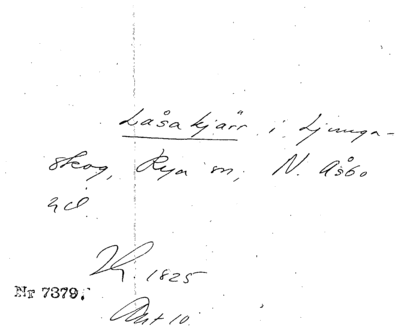 Låsakjärr i Ljunga-
skog, Rya sn, N. Åsbo
hd.
1825
Nr 7379.
Akt 10.